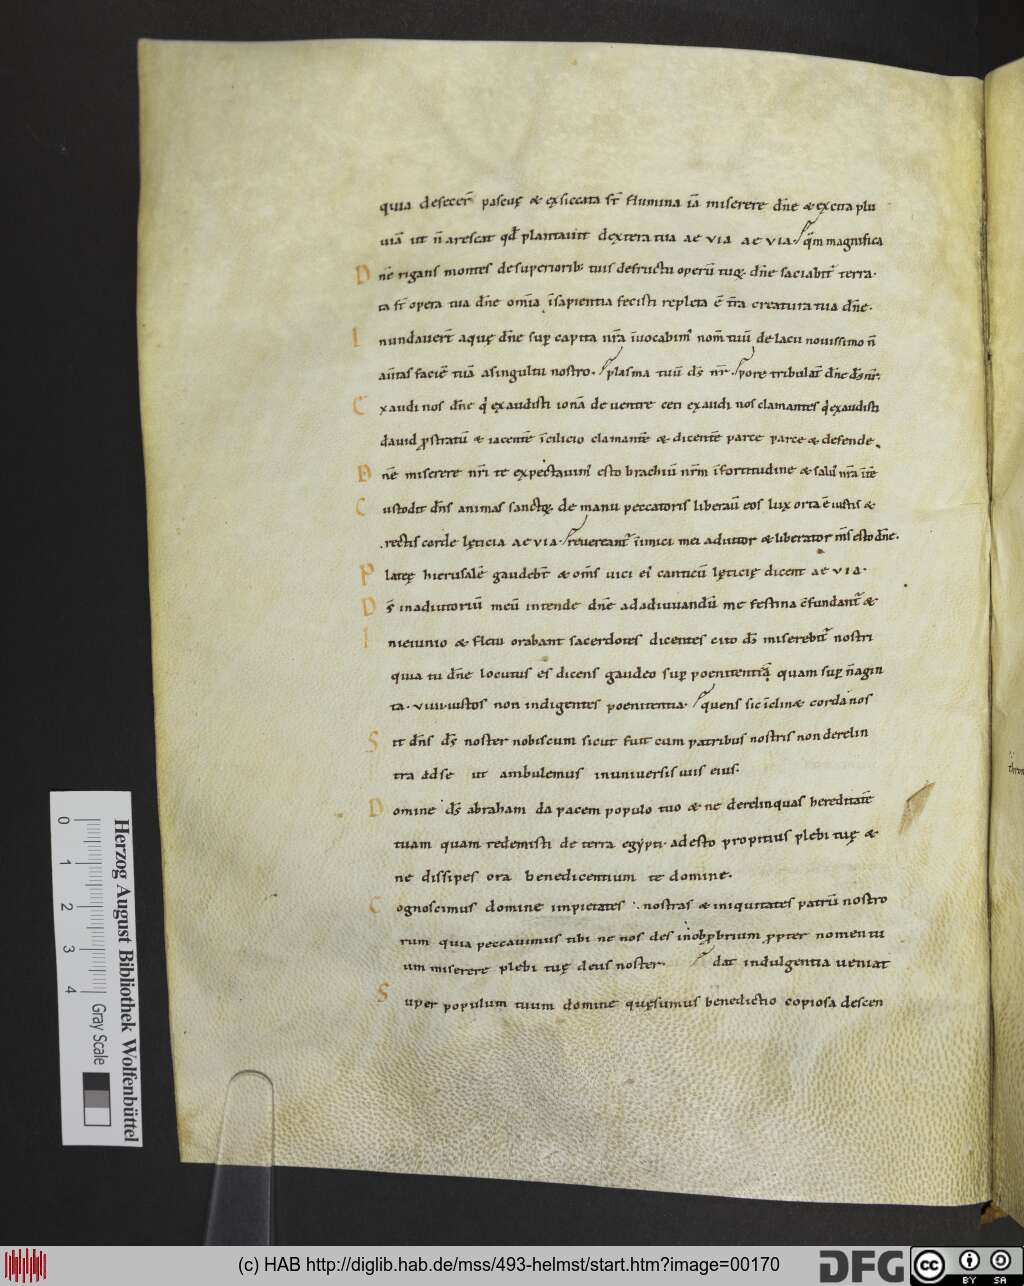 quia defecer̄ pascuę & exsiccata sr̄ flumina iā miserere dn̄e & excita plu
uiā ut n̄ arescat qđ plantauit dextera tua ae via ae via. qm̄ magnifica
Dn̄e rigans montes de superiorib; tuis de fructu operū tuoꝝ dn̄e saciabit̄ terra.
ta sr̄ opera tua dn̄e om̄ia īsapientia fecisti repleta ē t̄ra creatura tua dn̄e.
Inundauer̄t aquę dn̄e sup̄ capita nr̄a īuocabim' nom̄ tuū de lacu nouissimo n̄
au̅tas faciē tuā a singultu nostro. plasma tuū dš nr̄. pore tribulat̄ dn̄e dš nr̄.
Exaudi nos dn̄e q̇ exaudisti ionā de ventre ceti exaudi nos clamantes q̇ exaudisti
dauid ꝓstratū & iacentē ī cilicio clamantē & dicentē parce parce & defende.
Dn̄e miserere nr̄i te expectauim' esto brachiū nr̄m ī fortitudine & sal' nr̄a ī t̄e
Custodit dn̄s animas sanctoꝝ de manu peccatoris liberau̅ eos lux orta ē iustis &
rectis corde lęticia ae via. reuereant̄ īimici mei adiutor & liberator m̄s esto dn̄e.
Plateę hierusalē gaudebt̄ & om̄s uici ei' canticū lęticię dicent ae via.
Dš in adiutoriū meū intende dn̄e ad adiuuandū me festina c̄fundant̄ &
In ieiunio & fletu orabant sacerdotes dicentes cito dš miserebit̄ nostri
quia tu dn̄e locutus es dicens gaudeo sup̄ poenitentiā quam sup̄ n̄agin
ta. viiii. iustos non indigentes poenitentia. quens sic īclinae corda nos
Sit dn̄s dš noster nobiscum sicut fuit cum patribus nostris non derelin
tra ad se ut ambulemus in uniuersis uiis eius.
Domine dš abraham da pacem populo tuo & ne derelinquas hereditatē
tuam quam redemisti de terra egypti. adesto propitius plebi tuę &
ne dissipes ora benedicentium te domine.
Cognoscimus domine impietates nostras & iniquitates patrū nostro
rum quia peccauimus tibi ne nos des in obꝓbrium ꝓpter nomen tu
um miserere plebi tuę deus noster. dat indulgentia ueniat
Super populum tuum domine quęsumus benedictio copiosa descen
Herzog August Bibliothek Wolfenbüttel
0 1 2 3 4 Gray Scale
(c) HAB http://diglib.hab.de/mss/493-helmst/start.htm?image=00170
DFG
cc BY SA